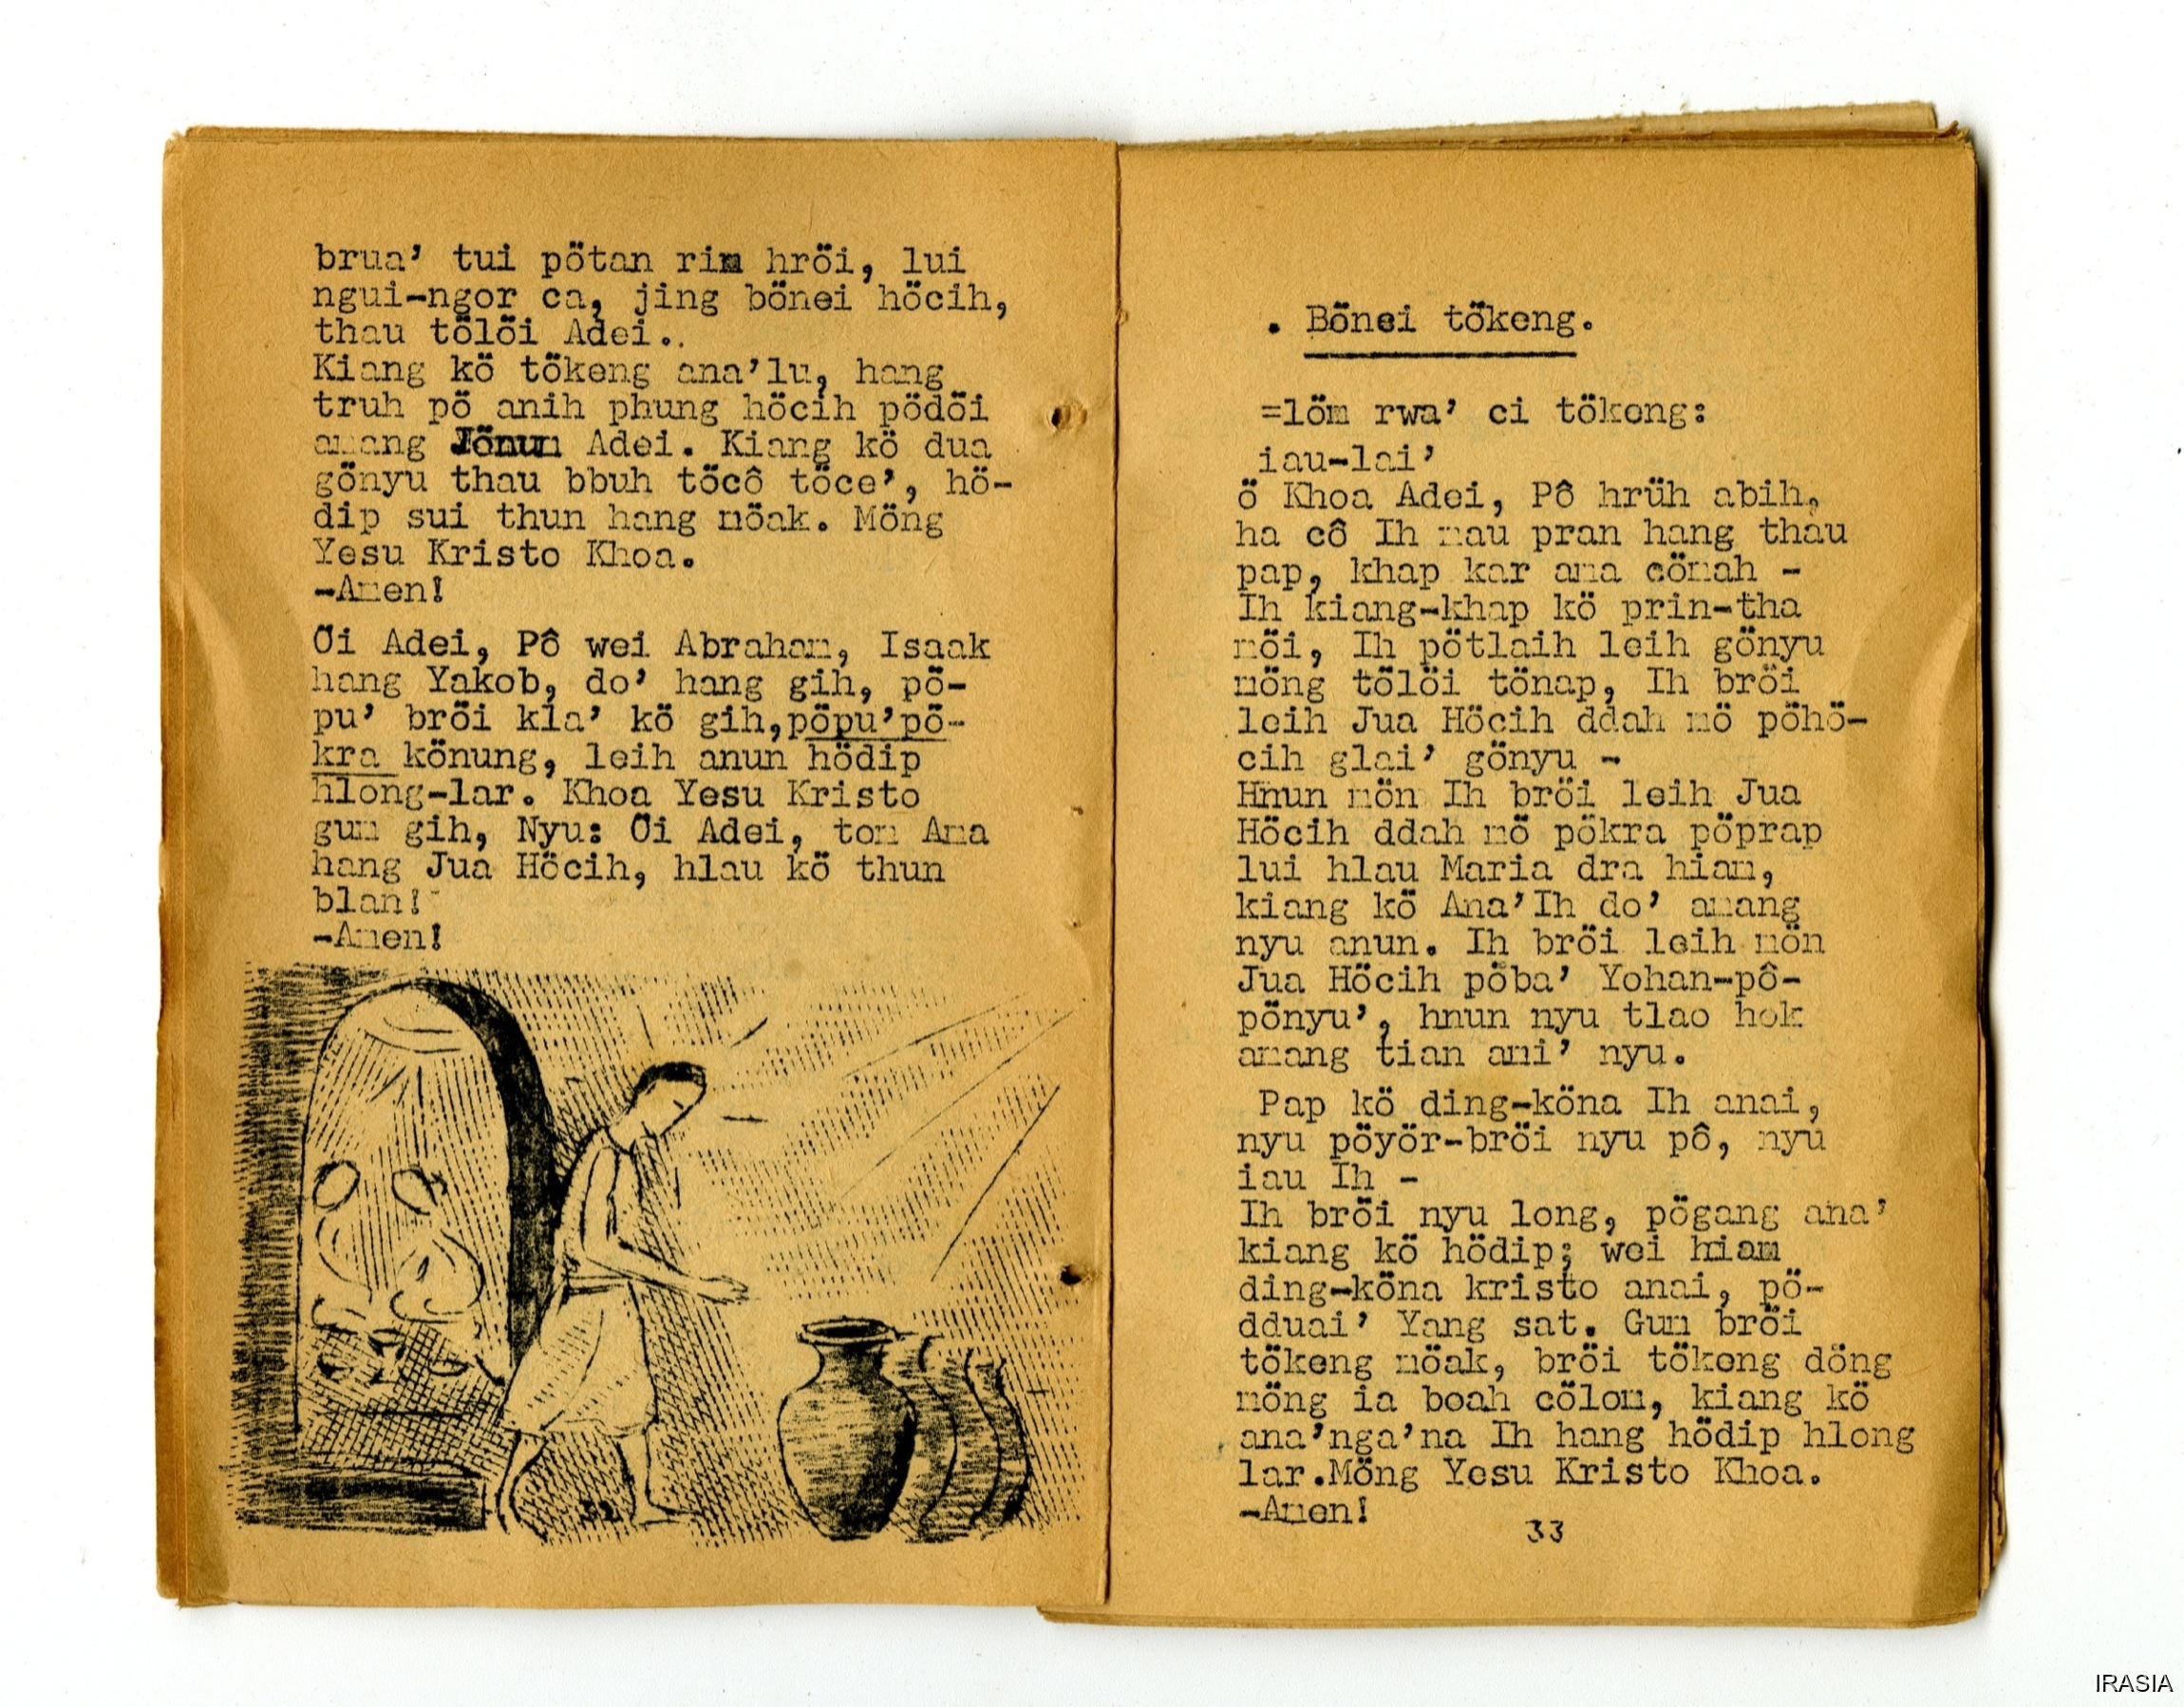 brua’ tui pötan rim hröi, lui
ngui-ngor ca, jing bönei höcih,
thau tölöi Adei..
Kiang kö tökeng ana’lu, hang
truh pö anih phung höcih pödöi
amang Jönum Adei. Kiang kö dua
gönyu thau bbuh töcô töce’, hö-
dip sui thun hang möak. Möng
Yesu Kristo Khoa.
-Amen!
Öi Adei, Pô wei Abraham, Isaak
hang Yakob, do’ hang gih, pö-
pu’ bröi kla’ kö gih,pöpu’pö-
kra könung, leih anun hödip
hlong-lar. Khoa Yesu Kristo
gum gih, Nyu: Öi Adei, tom Ama
hang Jua Höcih, hlau kö thun
blan!
-Amen!
. Bönei tökeng.
=löm rwa’ ci tökeng:
iau-lai’
ö Khoa Adei, Pô hrüh abih,
ha cô Ih mau pran hang thau
pap, khap kar ama cömah -
Ih kiang-khap kö prin-tha
möi, Ih pötlaih leih gönyu
möng tölöi tönap, Ih bröi
leih Jua Höcih ddah mö pöhö-
cih glai’ gönyu -
Hnun mön Ih bröi leih Jua
Höcih ddah mö pökra pöprap
lui hlau Maria dra hiam,
kiang kö Ana’Ih do’ amang
nyu anun. Ih bröi leih mön
Jua Höcih pöba’ Yohan-pô-
pönyu’, hnun nyu tlao hok
amang tian ami’ nyu.
Pap kö ding-köna Ih anai,
nyu pöyör-bröi nyu pô, nyu
iau Ih -
Ih bröi nyu long, pögang ana’
kiang kö hödip; wei hiam
ding-köna kristo anai, pö-
dduai’ Yang sat. Gum bröi
tökeng möak, bröi tökeng döng
möng ia boah cölom, kiang kö
ana’nga’na Ih hang hödip hlong
lar.Möng Yesu Kristo Khoa.
-Amen!
33
IRASIA